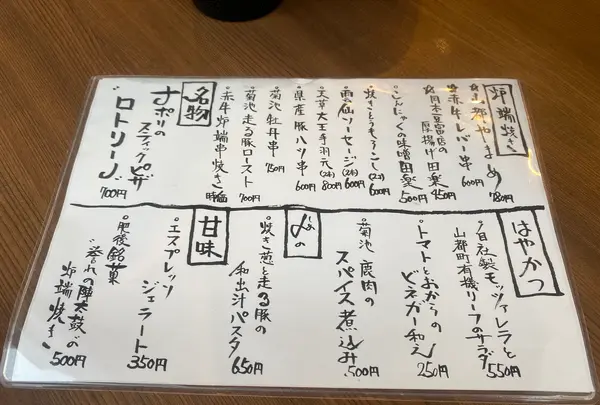 炉端焼き
・山都やまめ 780円
・赤牛レバー串 600円
・岡本豆富店の
厚揚げ田楽 450円
・こんにゃくの味噌田楽 500円
・焼きとうもろこし(2本) 600円
・雲仙ソーセージ(2本) 600円
・天草大王手羽元(2本) 800円
・県産豚ハツ串 600円
・菊池 牡丹串 750円
・菊池 走る豚ロースト 700円
・赤牛炉端串焼き 時価
名物
ナポリの
スティックピザ
"ロトリーノ" 700円
はやかつ
・自社製モッツァレラと
山都町有機リーフのサラダ 550円
・トマトとおからの
ビネガー和え 250円
・菊池 鹿肉の
スパイス煮込み 500円
〆の
・焼き葱と走る豚の
和出汁パスタ 650円
甘味
・エスプレッソ
ジェラート 350円
・肥後銘菓
"誉れの陣太鼓"の
炉端焼き 500円